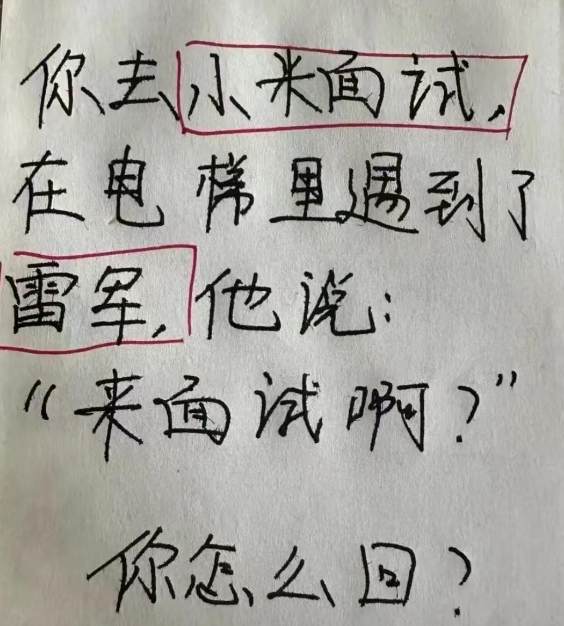 你去小米面试,
在电梯里遇到了
雷军,他说:
“来面试啊?”
你怎么回?